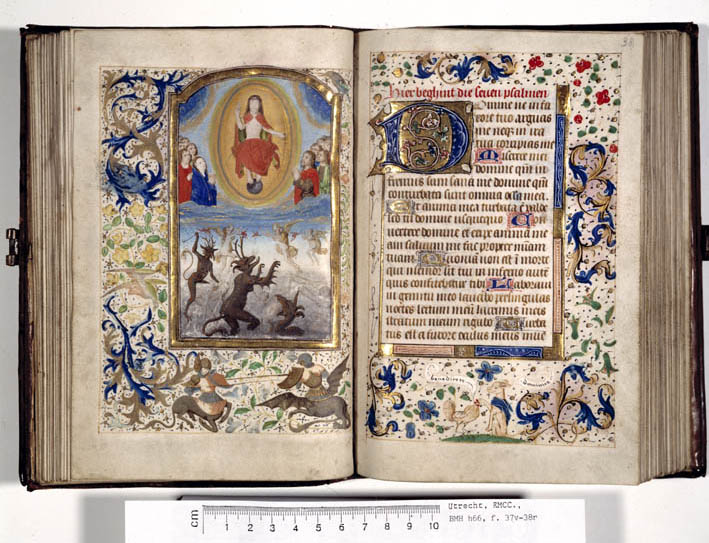 38
Hier beghint die seven psalmen
Domine ne in fu
rore tuo arguas
me neqz in ira
tua corripias me
Miserere mei
domine qm in
firmus sum sana me domine qm
conturbata sunt omnia ossa mea
Et anima mea turbata e valde
sed tu domine usquequo Con
vertere domine et eripe animam me
am salvum me fac propter miam
tuam Quoniam non est i morte
qui memor sit tui in inferno aute
quis confitebitur tibi Laboravi
in gemitu meo lavabo per singulas
noctes lectum meu lacrimis meis
stratum meum rigabo Turba
tus est a furore oculus meus inte
cm
1 2 3 4 5 6 7 8 9 10
Utrecht, RMCC.,
BMH h66, f. 37v-38r